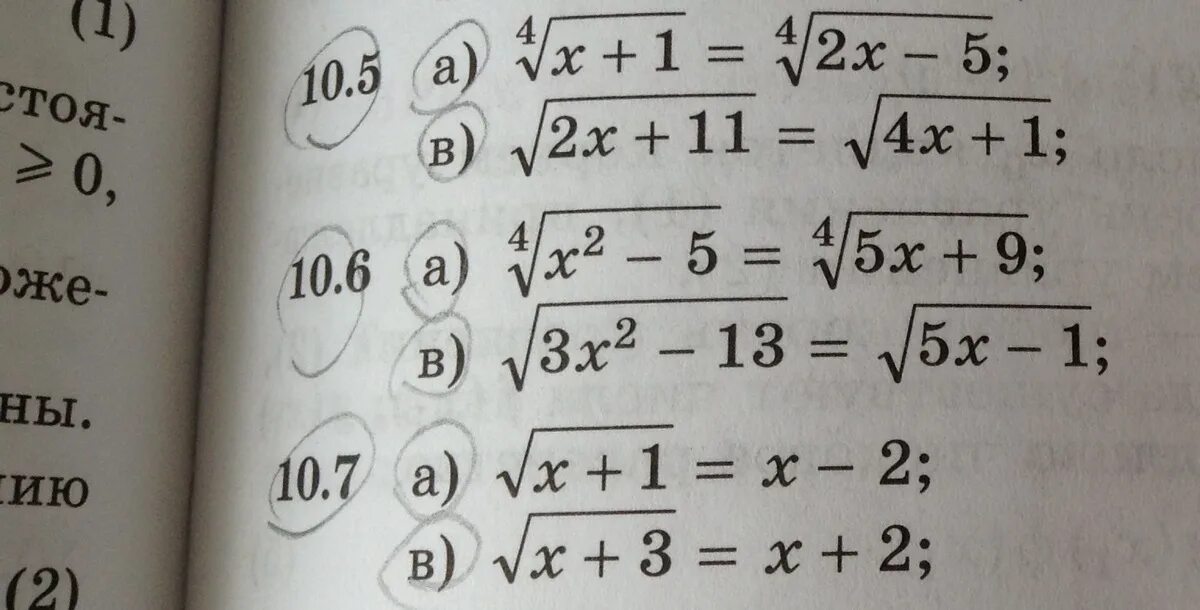 (1)
стоя-
⩾ 0,
оже-
ны.
нию
(2)
10.5 а) ⁴√(x + 1) = ⁴√(2x − 5);
в) √(2x + 11) = √(4x + 1);
10.6 а) ⁴√(x² − 5) = ⁴√(5x + 9);
в) √(3x² − 13) = √(5x − 1);
10.7 а) √(x + 1) = x − 2;
в) √(x + 3) = x + 2;